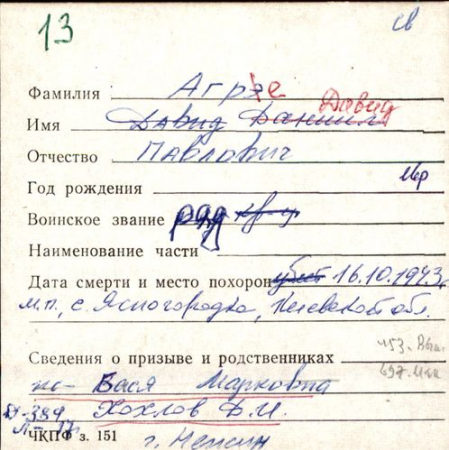 13 св
Фамилия Агрэе
Давид
Имя Давид Даниил
Отчество Павлович
Год рождения
Воинское звание ряд
Наименование части
Дата смерти и место похорон убит 16.10.1943г
м.п., с. Ясногородка, Киевской обл.
Сведения о призыве и родственниках
Вася Марковна
Д-384 Хохлов Д.И.
Л-17
ЧКПФ з. 151 г. Нежин